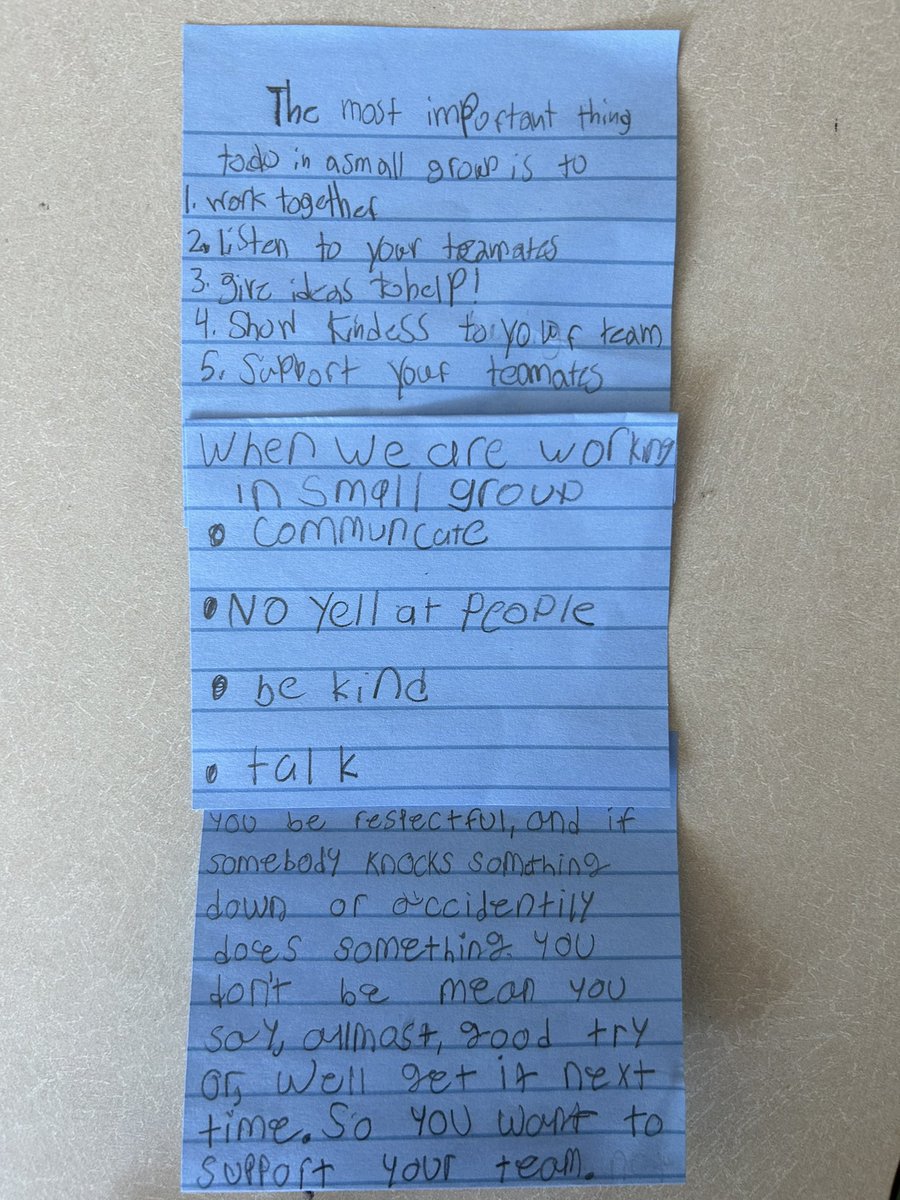 The most important thing
todo in a small group is to
1. work together
2. Listen to your teamates
3. give ideas to help!
4. Show kindess to your team
5. Support your teamates
When we are working
in small group
• communcate
• No Yell at People
• be kind
• talk
you be respectful, and if
somebody knocks somthing
down or accidentily
does something you
don't be mean you
say, allmost, good try
or, well get it next
time. So you want to
support your team.